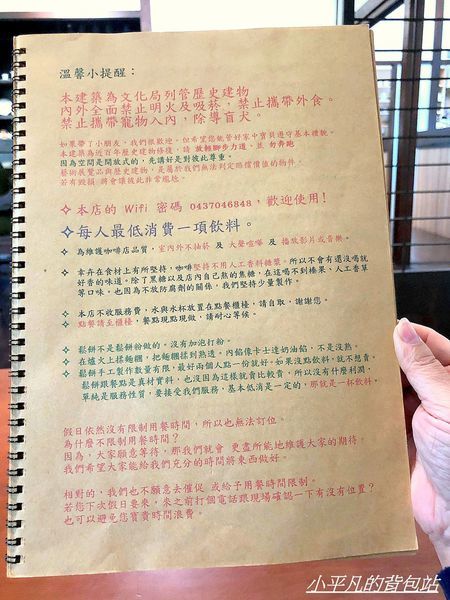 溫馨小提醒：
本建築為文化局列管歷史建物
內外全面禁止明火及吸菸，禁止攜帶外食。
禁止攜帶寵物入內，除導盲犬。
如果帶了小朋友，我們很歡迎。但希望您能管好家中寶貝遵守基本禮貌。
本建築為近百年歷史建物修復，請 放輕腳步力道，並 勿奔跑
因為空間是開放式的，先講好是對彼此尊重。
藝術展覽品與歷史建物，是屬於我們無法判定賠償價值的物件。
若有毀損 將會讓彼此非常尷尬。
✧ 本店的 Wifi 密碼 0437046848，歡迎使用！
✧ 每人最低消費一項飲料。
✧ 為維護咖啡店品質，室內外不抽菸 及 大聲喧嘩 及 播放影片或音樂。
✧ 幸卉在食材上有所堅持，咖啡堅持不用人工香料糖漿。所以不會有還沒喝就
好香的味道，除了黑糖以及店內自己熬的焦糖，在這喝不到榛果、人工香草
等口味，也因為不放防腐劑的關係，我們堅持少量製作。
✧ 本店不收服務費，水與水杯放置在點餐櫃檯，請自取，謝謝您。
✧ 點餐請至櫃檯，餐點現點現做，請耐心等候。
✧ 鬆餅不是鬆餅粉做的，沒有加泡打粉。
✧ 在爐火上揉麵糰，把麵糰揉到熟透。內餡像卡士達奶油餡，不是沒熟。
✧ 鬆餅手工製作數量有限，最好兩個人點一份就好。如果沒點飲料，就不想賣。
鬆餅跟餐點是真材實料，也沒因為這樣就賣比較貴，所以沒有什麼利潤，
單純是服務性質，要接受我們服務，基本低消是一定的，那就是一杯飲料。
假日依然沒有限制用餐時間，所以也無法訂位。
為什麼不限制用餐時間？
因為，大家願意等待，那我們就會 更盡所能地維護大家的期待，
我們希望大家能給我們充分的時間將東西做好。
相對的，我們也不願意去催促 或給予用餐時間限制。
若您下次假日要來，來之前打個電話跟現場確認一下有沒有位置？
也可以避免您寶貴時間浪費。
小平凡的背包站